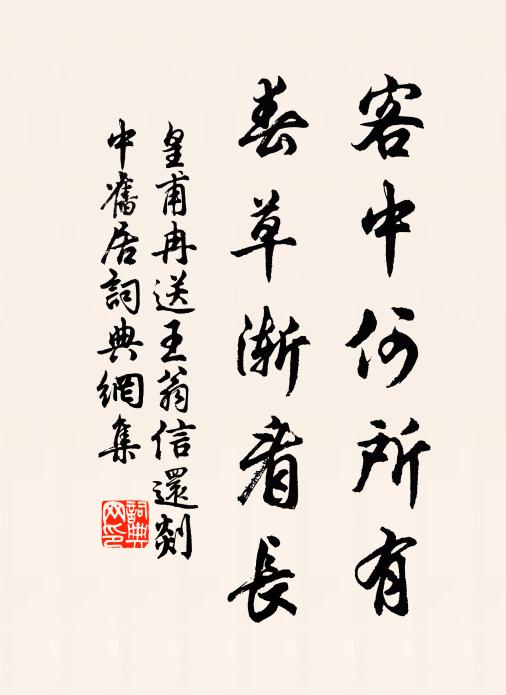 客中何所有
春草漸看長
皇甫冉送王翁信還剡
中舊居詞典網集
詞典
网印